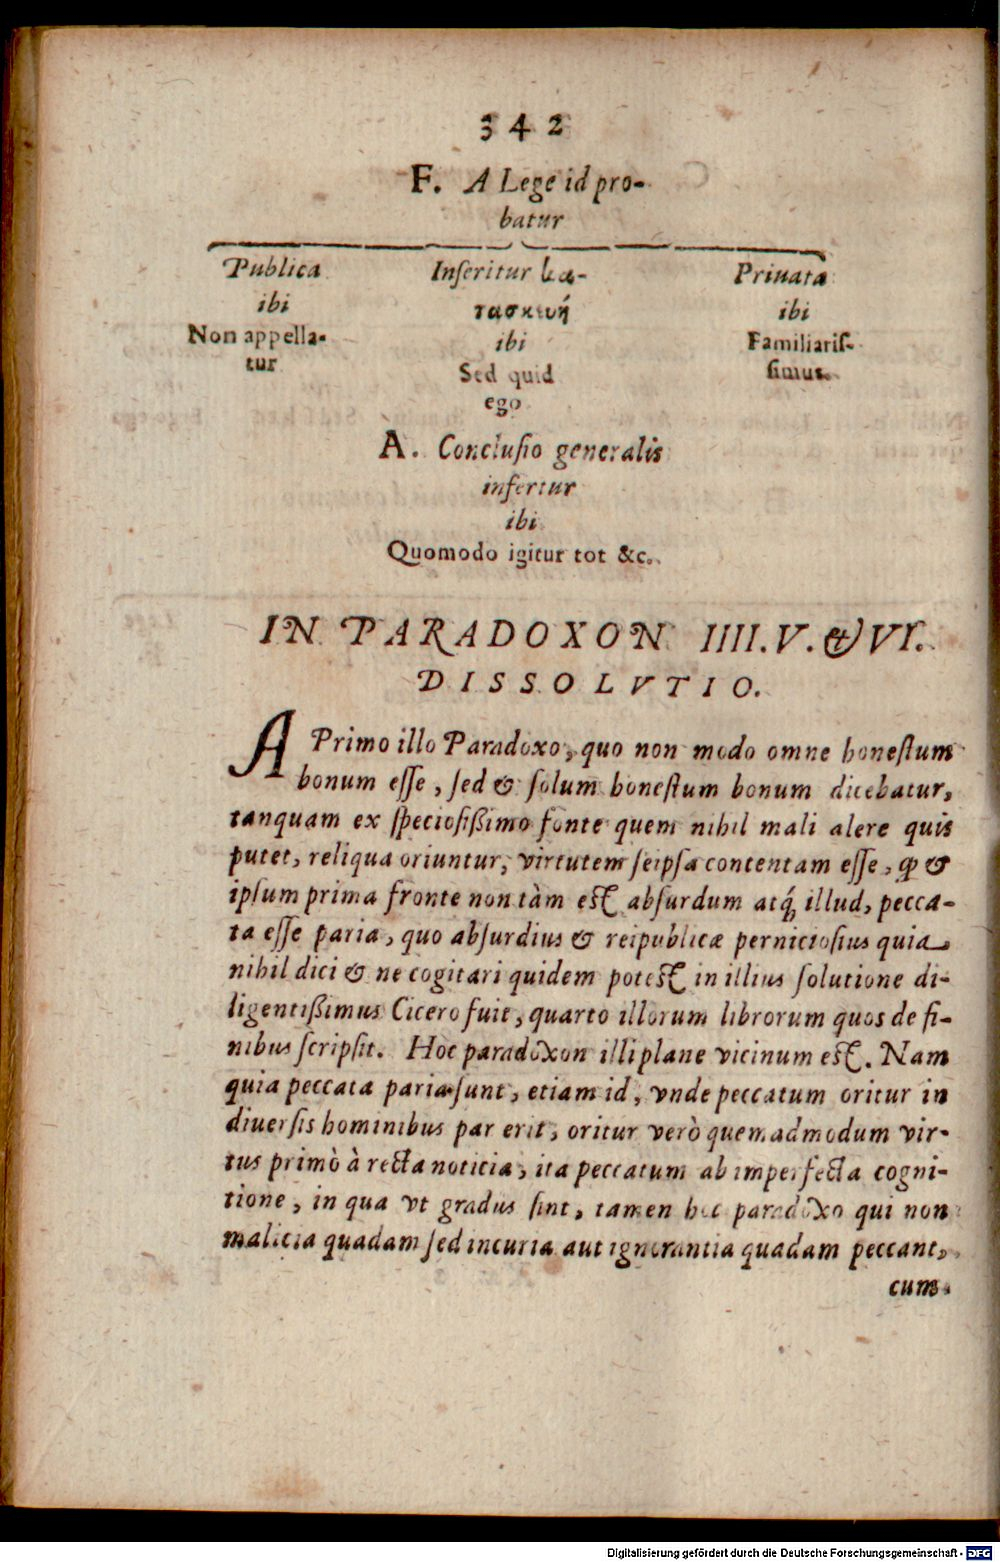 342
F. A Lege id pro-
batur
Publica
ibi
Non appella-
tur
Inseritur κα-
τασκευή
ibi
Sed quid
ego
Priuata
ibi
Familiaris-
simus.
A. Conclusio generalis
infertur
ibi
Quomodo igitur tot &c.
IN PARADOXON IIII. V. & VI.
DISSOLVTIO.
A Primo illo Paradoxo, quo non modo omne honestum
bonum esse, sed & solum honestum bonum dicebatur,
tanquam ex speciosißimo fonte quem nihil mali alere quis
putet, reliqua oriuntur, virtutem seipsa contentam esse, qđ &
ipsum prima fronte non tàm est absurdum atq́; illud, pecca-
ta esse paria, quo absurdius & reipublicæ perniciosius quia
nihil dici & ne cogitari quidem potest in illius solutione di-
ligentißimus Cicero fuit, quarto illorum librorum quos de fi-
nibus scripsit. Hoc paradoxon illi plane vicinum est. Nam
quia peccata paria sunt, etiam id, vnde peccatum oritur in
diuersis hominibus par erit, oritur verò quemadmodum vir-
tus primò à recta noticia, ita peccatum ab imperfecta cogni-
tione, in qua vt gradus sint, tamen hoc paradoxo qui non
malicia quadam sed incuria aut ignorantia quadam peccant,
cum
Digitalisierung gefördert durch die Deutsche Forschungsgemeinschaft - DFG